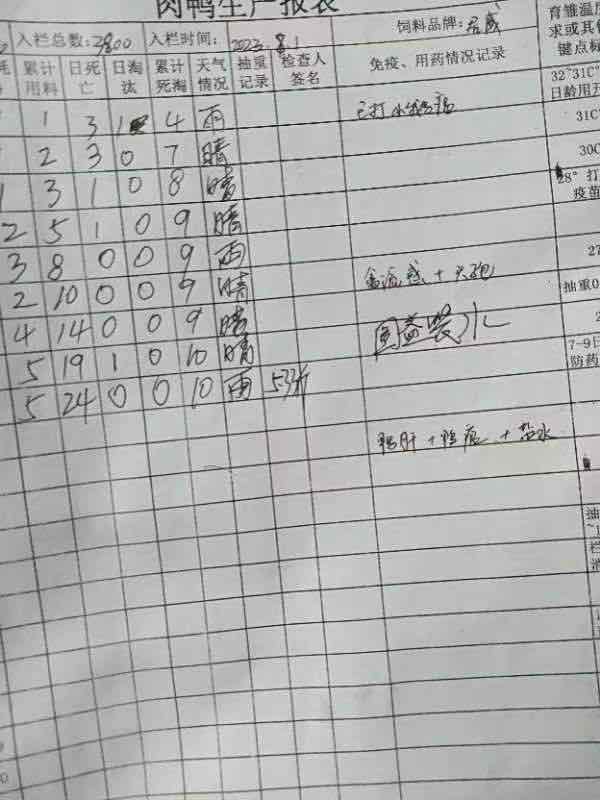 肉鸭生产报表
入栏总数:3800 入栏时间: 2023.8.1 饲料品牌:
育雏温度
求或其他
键点标
累计用料 日死亡 日淘汰 累计死淘 天气情况 抽重记录 检查人签名 免疫、用药情况记录
32~31C°
日龄用
1 3 1 4 雨 已打小鹅瘟
31C°
2 3 0 7 晴
30C
1 3 1 0 8 晴
28° 打
疫苗
2 5 1 0 9 晴
3 8 0 0 9 雨 禽流感 + 大炮
27
2 10 0 0 9 晴
抽重0
4 14 0 0 9 晴 水
2
5 19 1 0 10 晴
7-9日
防药
5 24 0 0 10 雨 53斤
鸭肝 + 鸭瘟 + 盐水
抽
栏
消